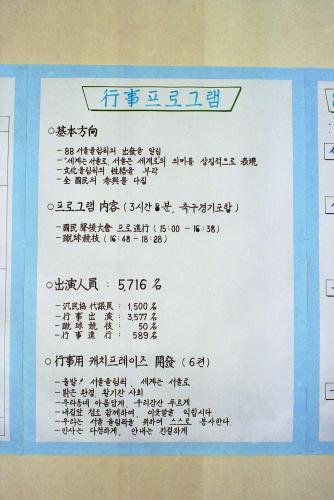 行事프로그램
○基本方向
- 88 서울올림픽의 出發을 알림
- "세계는 서울로, 서울은 세계로"의 의미를 상징적으로 表現
- 文化올림픽의 性格을 부각
- 全國民의 参與를 다짐
○프로그램 内容 (3시간 8분, 축구경기포함)
- 國民聲援大會 프로進行 (15:00 - 16:38)
- 蹴球競技 (16:48 - 18:28)
○出演人員 : 5,716名
- 汎民協代議員 : 1,500名
- 行事出演 : 3,577名
- 蹴球競技 : 50名
- 行事進行 : 589名
○行事用 캐치프레이즈 開發 (6편)
- 출발! 서울올림픽, 세계는 서울로
- 밝은 환경, 활기찬 사회
- 우리동네 아름답게, 우리강산 푸르게
- 내집앞 청소 함께하며, 이웃얼굴 익힙시다.
- 우리는 서울올림픽을 위하여 스스로 봉사한다.
- 인사는 다정하게, 안내는 친절하게